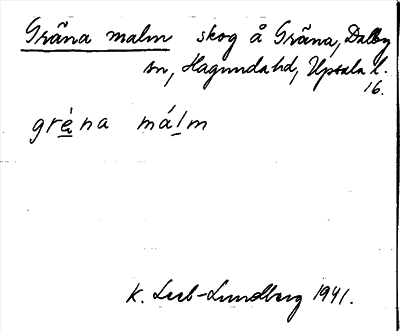 Gräna malm skog å Gräna, Dalby
sn, Hagundahd, Upsala l.
16.
grè̱na máḻm
K. Leeb-Lundberg 1941.